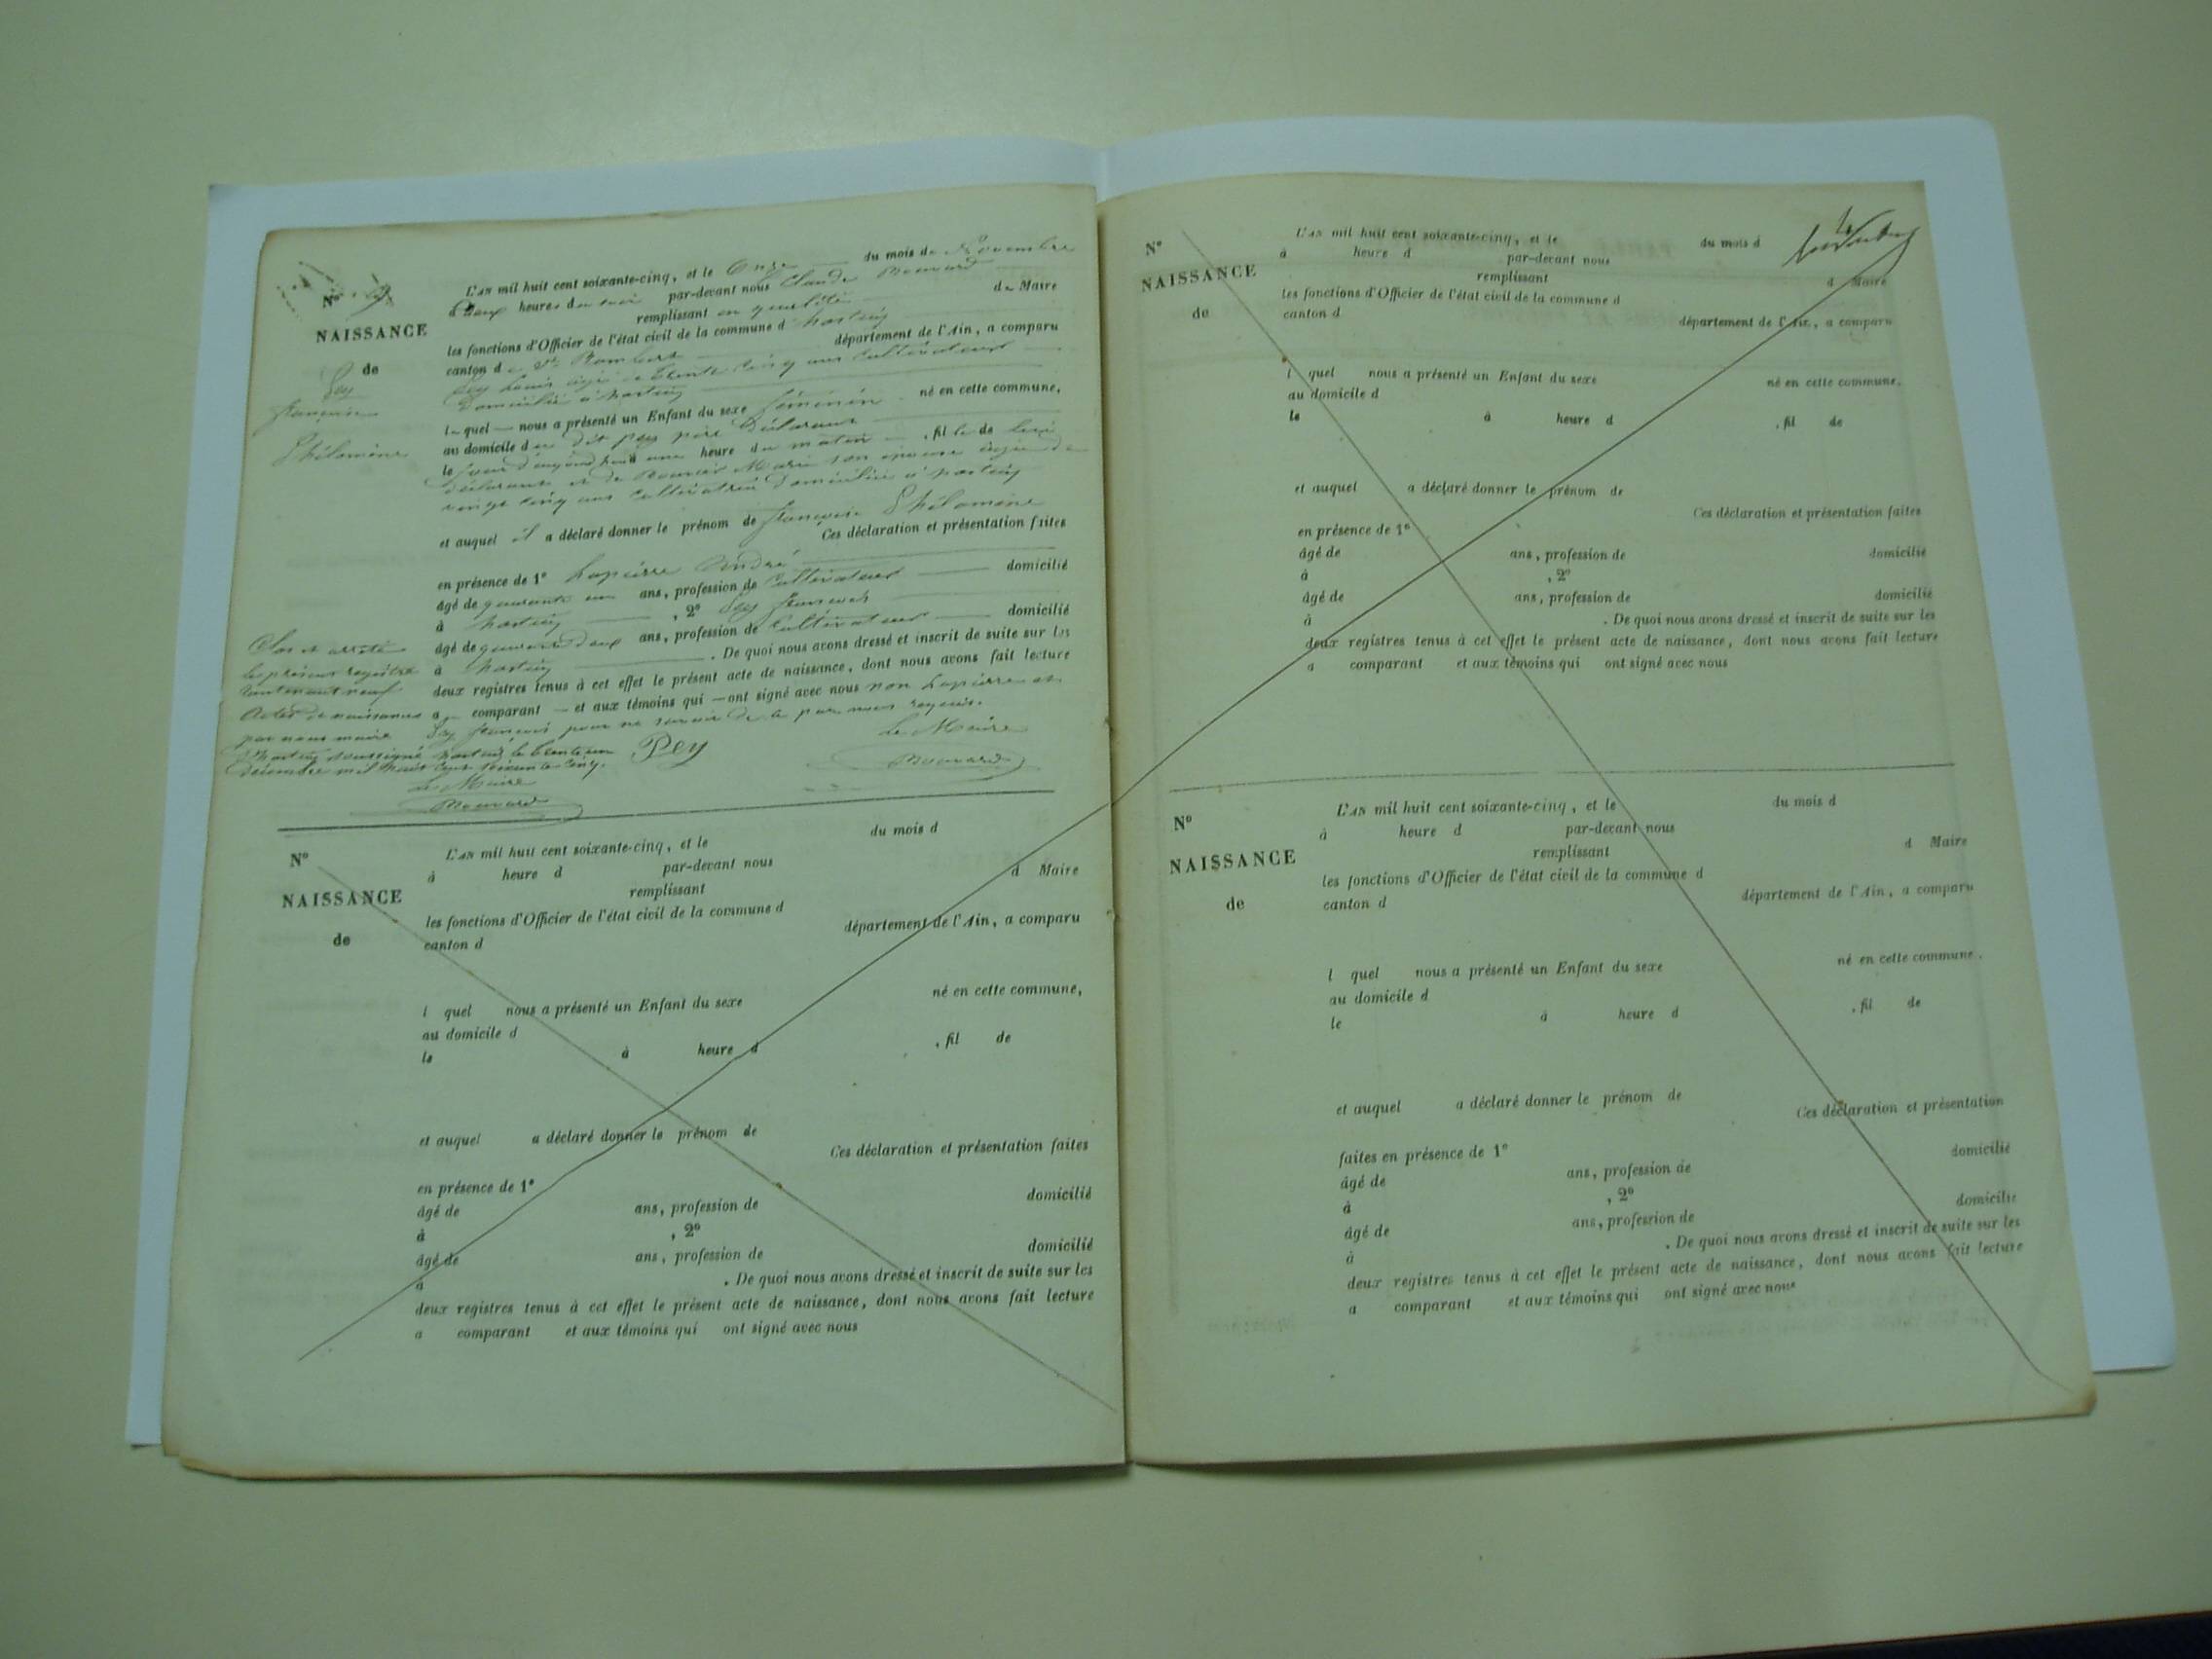 N° 9
NAISSANCE
de
Pey
françoise
Philomène
L'AN mil huit cent soixante-cinq, et le Onze du mois de Novembre
à deux heures du soir par-devant nous Claude
remplissant en qualité de Maire
les fonctions d'Officier de l'état civil de la commune d
canton de St Rambert département de l'Ain, a comparu
Pey Louis âgé de trente cinq ans cultivateur
Domicilié à
lequel nous a présenté un Enfant du sexe féminin né en cette commune,
au domicile du dit Pey père déclarant
le jour d'aujourd'hui à une heure du matin, fille de lui
déclarant et de Marie son épouse âgée de
vingt cinq ans cultivatrice Domiciliée à
et auquel il a déclaré donner le prénom de françoise Philomène
Ces déclaration et présentation faites
en présence de 1° Lapierre André
âgé de quarante un ans, profession de Cultivateur domicilié
à , 2° Pey françois
âgé de quarante deux ans, profession de Cultivateur domicilié
à . De quoi nous avons dressé et inscrit de suite sur les
deux registres tenus à cet effet le présent acte de naissance, dont nous avons fait lecture
au comparant et aux témoins qui ont signé avec nous non Lapierre et
Pey françois pour ne savoir de ce par nous requis.
Pey
Le Maire
Clos et arrêté
le présent registre
contenant neuf
Actes de naissances
par nous maire
soussigné le trente un
Décembre mil huit cent soixante cinq.
Le Maire
N°
NAISSANCE
de
L'AN mil huit cent soixante-cinq, et le du mois d
à heure d par-devant nous
remplissant d Maire
les fonctions d'Officier de l'état civil de la commune d
canton d département de l'Ain, a comparu
l quel nous a présenté un Enfant du sexe né en cette commune,
au domicile d
le à heure d , fil de
et auquel a déclaré donner le prénom de
Ces déclaration et présentation faites
en présence de 1°
âgé de ans, profession de domicilié
à , 2°
âgé de ans, profession de domicilié
à . De quoi nous avons dressé et inscrit de suite sur les
deux registres tenus à cet effet le présent acte de naissance, dont nous avons fait lecture
a comparant et aux témoins qui ont signé avec nous
N°
NAISSANCE
de
L'AN mil huit cent soixante-cinq, et le du mois d
à heure d par-devant nous
remplissant d Maire
les fonctions d'Officier de l'état civil de la commune d
canton d département de l'Ain, a comparu
l quel nous a présenté un Enfant du sexe né en cette commune.
au domicile d
le à heure d , fil de
et auquel a déclaré donner le prénom de
Ces déclaration et présentation faites
en présence de 1°
âgé de ans, profession de domicilié
à , 2°
âgé de ans, profession de domicilié
à . De quoi nous avons dressé et inscrit de suite sur les
deux registres tenus à cet effet le présent acte de naissance, dont nous avons fait lecture
a comparant et aux témoins qui ont signé avec nous
N°
NAISSANCE
de
L'AN mil huit cent soixante-cinq, et le du mois d
à heure d par-devant nous
remplissant d Maire
les fonctions d'Officier de l'état civil de la commune d
canton d département de l'Ain, a comparu
l quel nous a présenté un Enfant du sexe né en cette commune.
au domicile d
le à heure d , fil de
et auquel a déclaré donner le prénom de
Ces déclaration et présentation
faites en présence de 1°
âgé de ans, profession de domicilié
à , 2°
âgé de ans, profession de domicilié
à . De quoi nous avons dressé et inscrit de suite sur les
deux registres tenus à cet effet le présent acte de naissance, dont nous avons fait lecture
a comparant et aux témoins qui ont signé avec nous